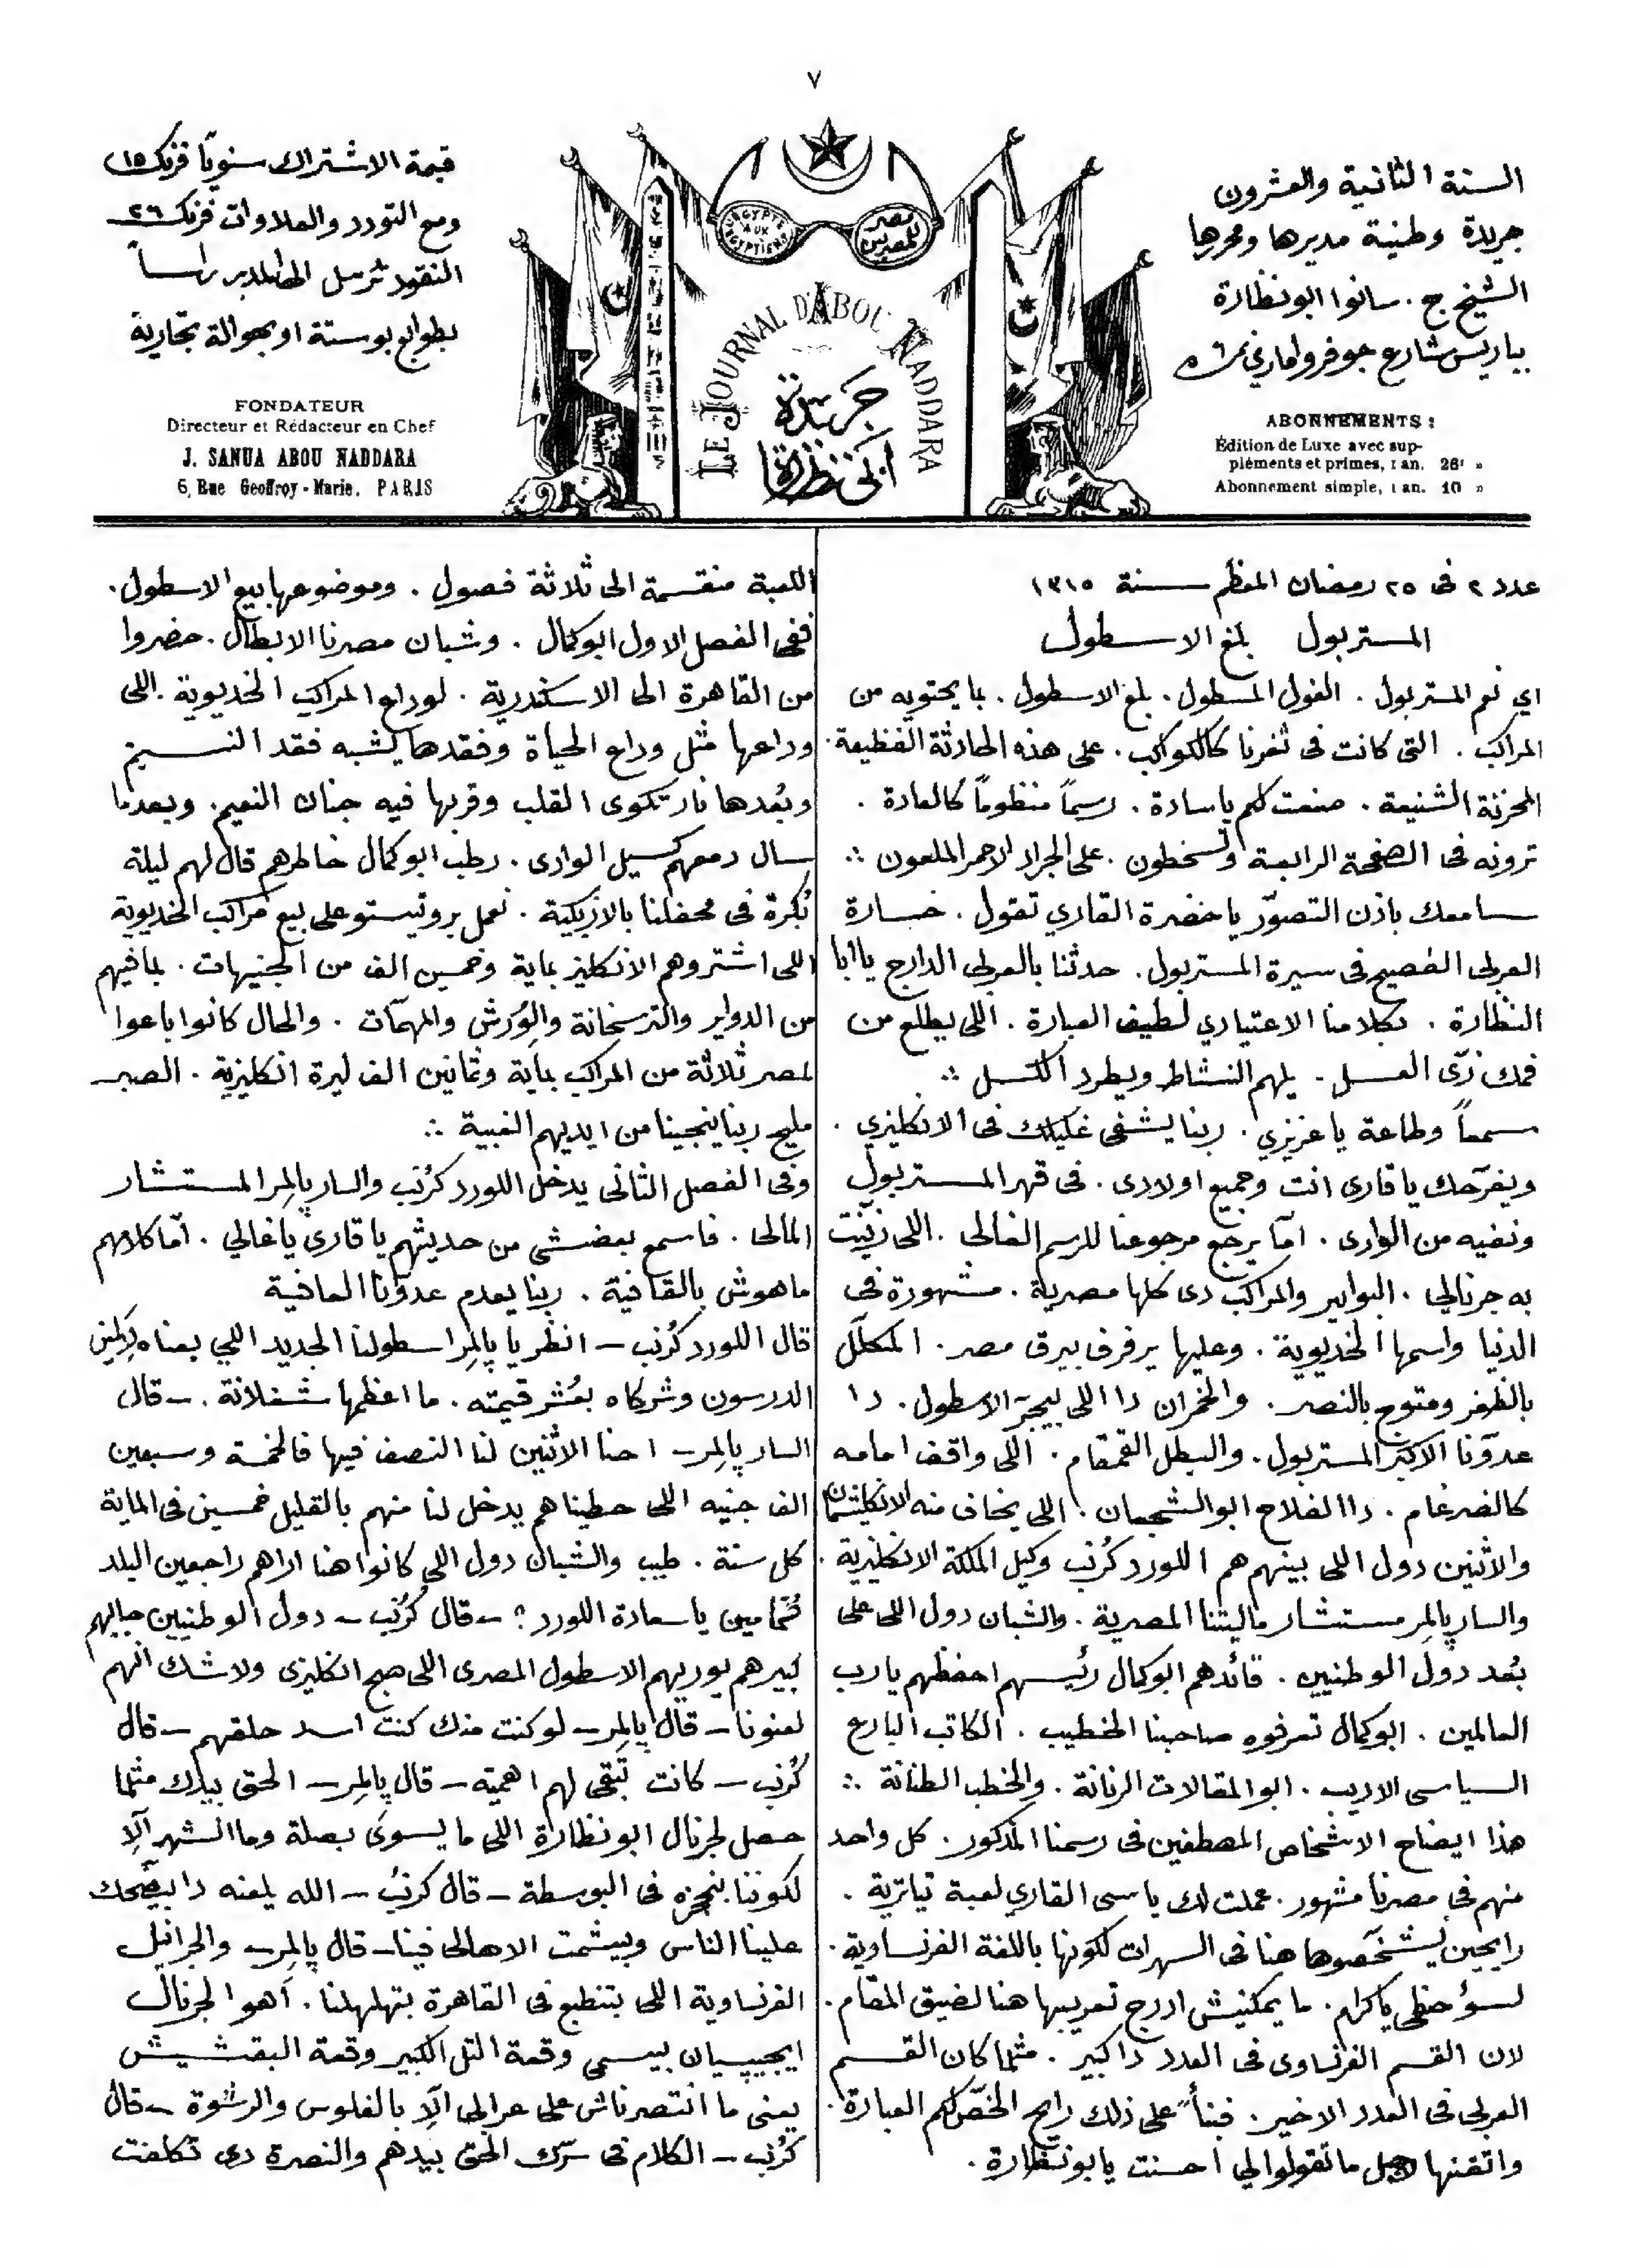 ٧
السنة الثانية والعشرون
جريدة وطنية مديرها ومحررها
الشيخ ج. سانوا ابو نظارة
بباريس شارع جوفروا ماري نمرة ٦
ABONNEMENTS :
Édition de Luxe avec sup-
pléments et primes, 1 an. 26f »
Abonnement simple, 1 an. 10 »
EGYPTE
AUX
EGYPTIENS
مصر
للمصريين
LE JOURNAL D'ABOU NADDARA
جريدة
ابى نظارة
قيمة الاشتراك سنويًا فرنك ١٥
ومع التودد والعلاوات فرنك ٢٦
النقود ترسل الى المدير راساً
بطوابع بوستة او بحوالة تجارية
FONDATEUR
Directeur et Rédacteur en Chef
J. SANUA ABOU NADDARA
6, Rue Geoffroy-Marie, PARIS
عدد ٢ فى ٢٥ رمضان المعظم سنة ١٣١٥
المستربول بلغ الاسطول
اي نعم المستربول. الغول المسطول. بلغ الاسطول. بما يحتويه من
المراكب. التى كانت فى ثغرنا كالكواكب. على هذه الحادثة الفظيعة.
المحزنة الشنيعة. صنعت لكم ياسادة. رسماً منظوماً كالعادة.
ترونه فى الصفحة الرابعة وتسخطون. على الجراد الاحمر الملعون ∴
سامعك باذن التصوّر ياحضرة القاري تقول. خسارة
العربى الفصيح فى سيرة المستربول. حدثنا بالعربى الدارج ياابا
النظارة. بكلامنا الاعتيادي لطيف العبارة. اللى يطلع من
فمك زىّ العسل. يلهم النشاط ويطرد الكسل ∴
سمعاً وطاعة ياعزيزي. ربنا يشفى غليلك فى الانكليزي.
ويفرّحك ياقارى انت وجميع اولادى. فى قهر المستربول
ونفيه من الوادى. امّا يرجع مرجوعنا للرسم الغالى. اللى زيّنت
به جرنالي. البوابير والمراكب دى كلها مصرية. مشهورة فى
الدنيا واسمها الخديوية. وعليها يرفرف بيرق مصر. المكلّل
بالظفر ومتوج بالنصر. والخمران دا اللى بيجرّ الاسطول. دا
عدوّنا الاكبر المستربول. والبطل القمقام. اللى واقف امامه
كالضرغام. دا الفلاح ابو الشجعان. اللى يخاف منه الانكليشمان
والاثنين دول اللى بينهم هم اللورد كُرنب وكيل الملكة الانكليزية.
والسار پالمِر مستشار ماليتنا المصرية. والشبان دول اللى على
بُعد دول الوطنيين. قائدهم ابو كمال رئيسهم احفظهم يارب
العالمين. ابو كمال تعرفوه صاحبنا الخطيب. الكاتب البارع
السياسى الاديب. ابو المقالات الرنانة. والخطب الطنانة ∴
هذا ايضاح الاشخاص المصطفين فى رسمنا المذكور. كل واحد
منهم فى مصرنا مشهور. عملت لك ياسى القاري لعبة تياترية.
رايحين يشخّصوها هنا فى السهرات لكونها باللغة الفرنساوية.
لسؤ حظى ياكرام. ما يمكنيش ادرج تعريبها هنا لضيق المقام.
لان القسم الفرنساوى فى العدد دا كبير. مثلما كان القسم
العربى فى العدد الاخير. فبناً على ذلك رايح الخّص لكم العبارة.
واتقنها لاجل ما تقولوا لي احسنت يابو نظارة.
اللعبة منقسمة الى ثلاثة فصول. وموضوعها بيع الاسطول.
ففى الفصل الاول ابو كمال. وشبان مصرنا الابطال. حضروا
من القاهرة الى الاسكندرية. لوداع المراكب الخديوية. اللى
وداعها مثل وداع الحياة وفقدها يشبه فقد النسيم
وبُعدها نار تكوى القلب وقربها فيه جنات النعيم. وبعدما
سال دمعهم كسيل الوادى. رطب ابو كمال خاطرهم قال لهم ليلة
بُكرة فى محفلنا بالازبكية. نعمل بروتيستو على بيع مراكب الخديوية
اللى اشتروهم الانكليز بماية وخمسين الف من الجنيهات. بما فيهم
من الدوابر والترسخانة والوُرَش والمهمّات. والحال كانوا باعوا
لمصر ثلاثة من المراكب بماية وثمانين الف ليرة انكليزية. الصبر
مليح ربنا ينجينا من ايديهم الغبية ∴
وفى الفصل الثانى يدخل اللورد كرُنب والسار پالمِر المستشار
المالى. فاسمع بعضشى من حديثهم ياقارى ياغالي. امّا كلامهم
ماهوش بالقافية. ربنا يعدم عدوّنا العافية
قال اللورد كُرنب – انظر يا پالمِر اسطولنا الجديد اللي بعناه
الدرسون وشركاه بعُشر قيمته. ما اعظمها شغلانة. – قال
السار پالمِر – احنا الاثنين لنا النصف فيها فالخمسة وسبعين
الف جنيه اللى حطيناهم يدخل لنا منهم بالقليل خمسين فى الماية
كل سنة. طيب والشبان دول اللى كانوا هنا اراهم راجعين البلد
ياسعادة اللورد؟ – قال كُرُنب – دول الوطنيين جايبهم
كبيرهم يوريهم الاسطول المصرى اللى صبح انكليزى ولاشك انّهم
لعنونا – قال پالمِر – لو كنت منك كنت اسد حلقهم – قال
كُرُنب – كانت تبقى لهم اهمية – قال پالمِر – الحق بيدك مثلما
حصل لجرنال ابو نظارة اللى ما يسوى بصلة وما اشهر الّا
لكوننا بنحجزه فى البوسطة – قال كرُنب – الله يلعنه دا بيضحّك
علينا الناس وبيشمت الاهالى فينا – قال پالمِر – والجرانيل
الفرنساوية اللى بتنطبع فى القاهرة بتهلهلنا. اَهو الجرنال
ايجيپسيان بيسمى وقعة التل الكبير وقعة البقشيش
يعنى ما انتصرناش على عرابى الّا بالفلوس والرشوة – قال
كرُنب – الكلام فى سرّك الحق بيدهم والنصرة دى تكلفت